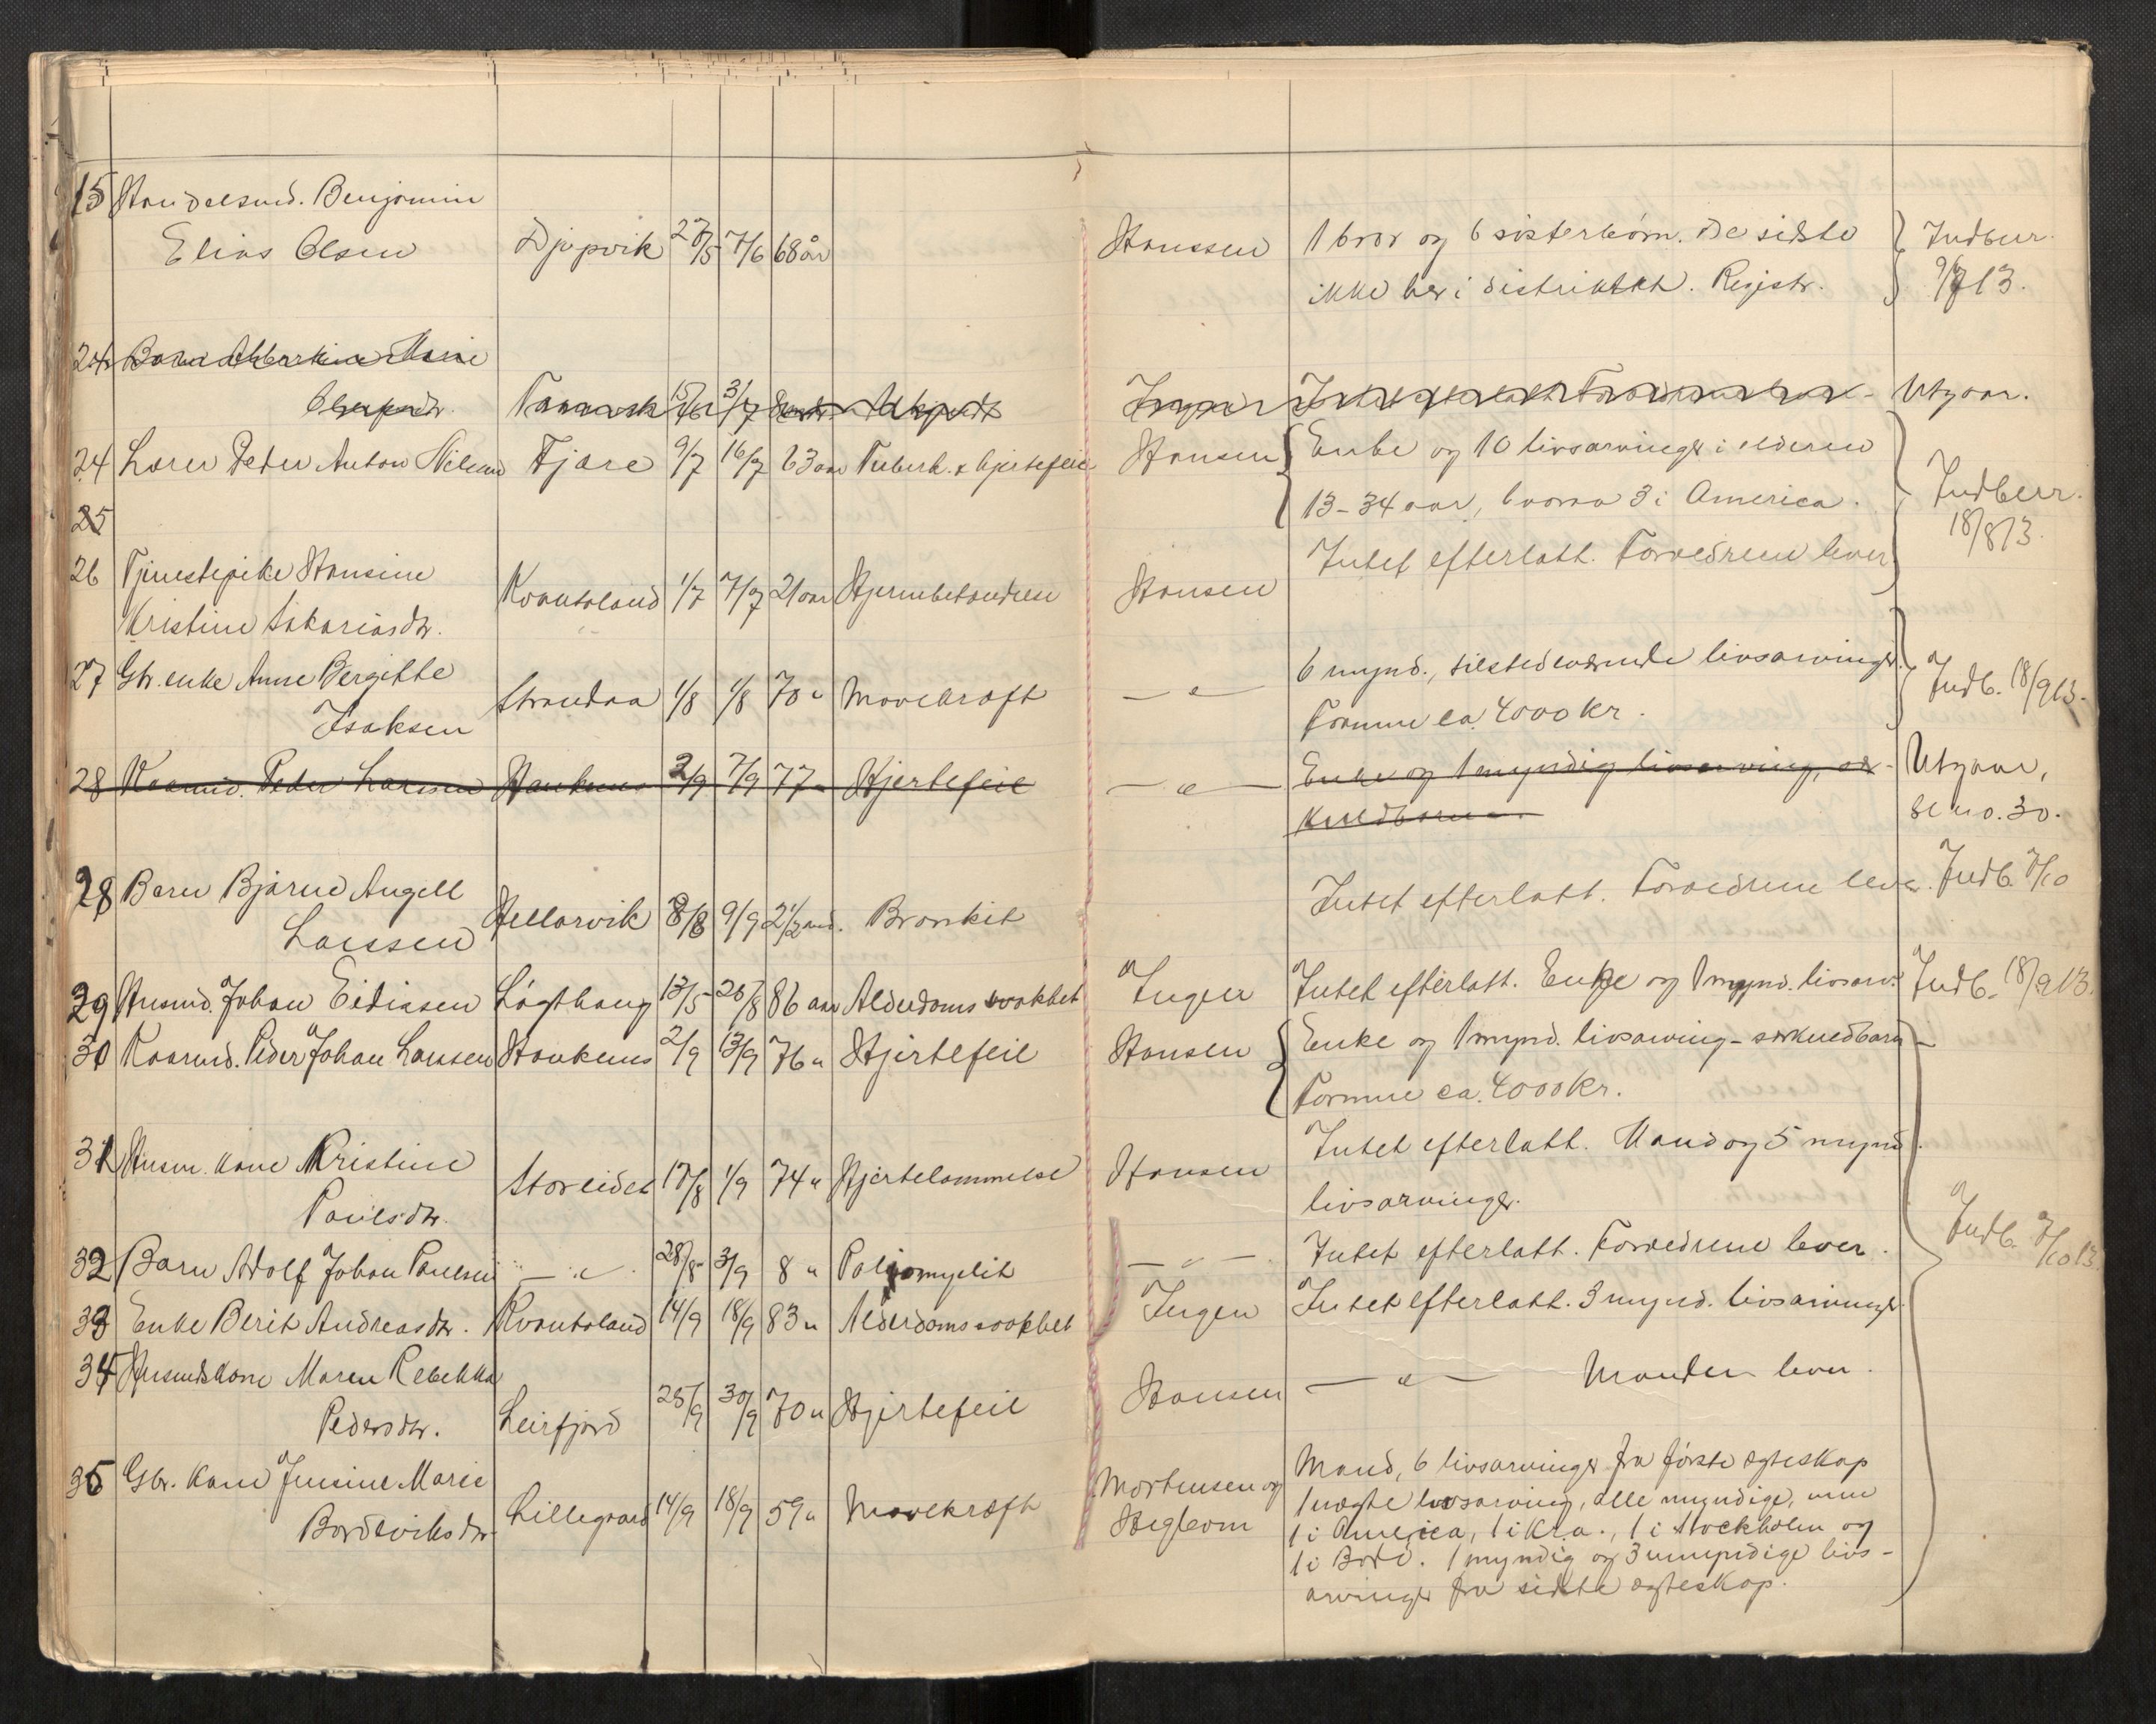 15 Handelsmd. Benjamin
Elias Olsen Djupvik 27/5 7/6 68 år Hanssen 1 bror og 6 søsterbørn. De sidste Indberr.
ikke her i distriktet. Registr. 9/7 13.
24 Barn Albertine Marie
Olufsdtr. 15/6 3/7 Ukjendt Ingen Utgaar.
24 Lærer Peder Anton Nilsen Fjære 9/7 16/7 63 aar Tuberk. & hjertefeil Hansen Enke og 10 livsarvinger i alderen
13-34 aar, hvorav 3 i America. Indberr.
25 18/8 13.
26 Tjenestepike Hansine Intet efterlatt. Forældrene lever
Kristine Sakariasdtr. Kvantoland 1/7 7/7 21 aar Hjernebetændelse Hansen
27 Gbr. enke Anne Bergitte 6 mynd., tilstedeværende livsarvinger.
Isaksen Strandaa 1/8 1/8 70 " Mavekræft — " — Formue ca. 4000 kr. Indb. 18/9 13.
28 Kaarmd. Peder Larssen Haukenes 2/9 7/9 77 " Hjertefeil — " — Enke og 1 myndig livsarving, sø- Utgaar,
kuldbarn. se no. 30.
28 Barn Bjarne Angell Intet efterlatt. Forældrene lever. Indb. 7/10
Larssen Hellarvik 8/8 9/9 2 1/2 md. Bronkit
29 Husmd. Johan Eidissen Løgthaug 13/5 26/8 86 aar Alderdomssvakhet Ingen Intet efterlatt. Enke og 1 mynd. livsarv. Indb. 18/9 13.
30 Kaarmd. Peder Johan Larssen Haukenes 2/9 13/9 76 " Hjertefeil Hansen Enke og 1 mynd. livsarving - særkuldbarn -
Formue ca. 4000 kr.
31 Husm. kone Kristine Intet efterlatt. Mand og 5 mynd.
Paulsdtr. Storeidet 17/8 1/9 74 " Hjertelammelse Hansen livsarvinger.
32 Barn Adolf Johan Paulsen — " — 28/8 3/9 8 " Poliomyelit — " — Intet efterlatt. Forældrene lever. Indb. 7/10 13.
33 Enke Berit Andreasdtr. Kvantoland 14/9 18/9 83 " Alderdomssvakhet Ingen Intet efterlatt. 3 mynd. livsarvinger.
34 Husmdskone Maren Rebekka — " — Manden lever.
Pedersdtr. Leirfjord 25/9 30/9 70 " Hjertefeil Hansen
35 Gbr. kone Jensine Marie Mand, 6 livsarvinger fra første ægteskap
Bordeviksdtr. Lillegaard 14/9 18/9 59 " Mavekræft Mortensen og 1 uægte livsarving, alle myndige, men
1 i America, 1 i Kr.a., 1 i Stockholm og
1 i Bodø. 1 myndig og 3 umyndige livs-
arvinger fra sidste ægteskap.